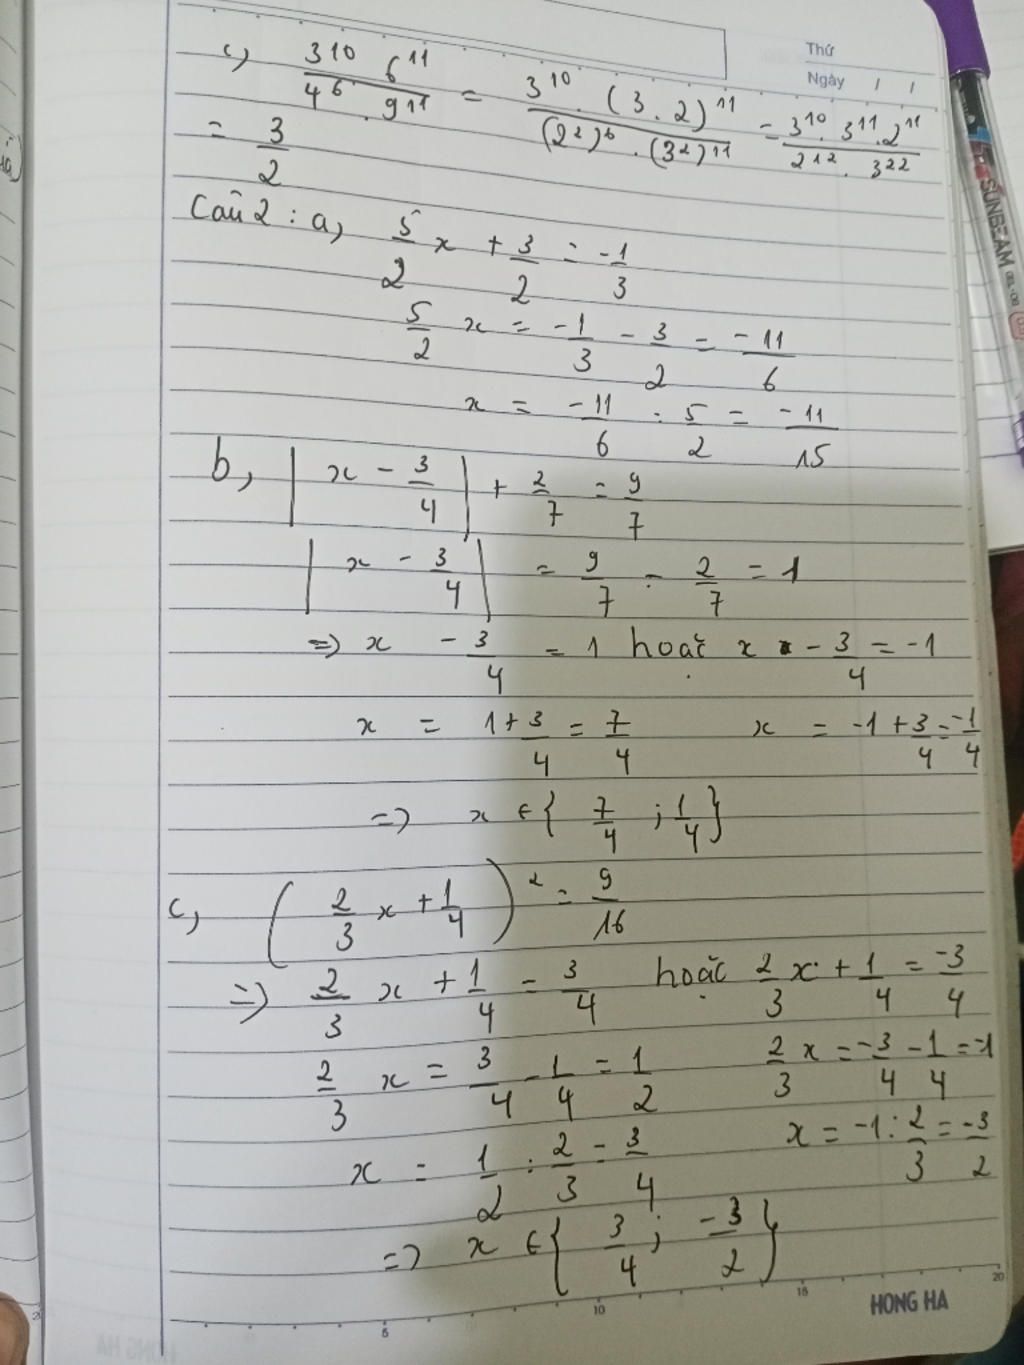 Thứ
Ngày / /
c, 3^10 6^11 / 4^6 . 9^11 = 3^10 . (3 . 2)^11 / (2^2)^6 . (3^2)^11 = 3^10 . 3^11 . 2^11 / 2^12 . 3^22
= 3/2
Câu 2 : a, 5/2 x + 3/2 = -1/3
5/2 x = -1/3 - 3/2 = -11/6
x = -11/6 : 5/2 = -11/15
b, | x - 3/4 | + 2/7 = 9/7
| x - 3/4 | = 9/7 - 2/7 = 1
=> x - 3/4 = 1 hoặc x - 3/4 = -1
x = 1 + 3/4 = 7/4 x = -1 + 3/4 = -1/4
=> x ∈ { 7/4 ; 1/4 }
c, ( 2/3 x + 1/4 )^2 = 9/16
=> 2/3 x + 1/4 = 3/4 hoặc 2/3 x + 1/4 = -3/4
2/3 x = 3/4 - 1/4 = 1/2 2/3 x = -3/4 - 1/4 = -1
x = 1/2 : 2/3 = 3/4 x = -1 : 2/3 = -3/2
=> x ∈ { 3/4 ; -3/2 }
5 10 15 20
HONG HA
SUNBEAM